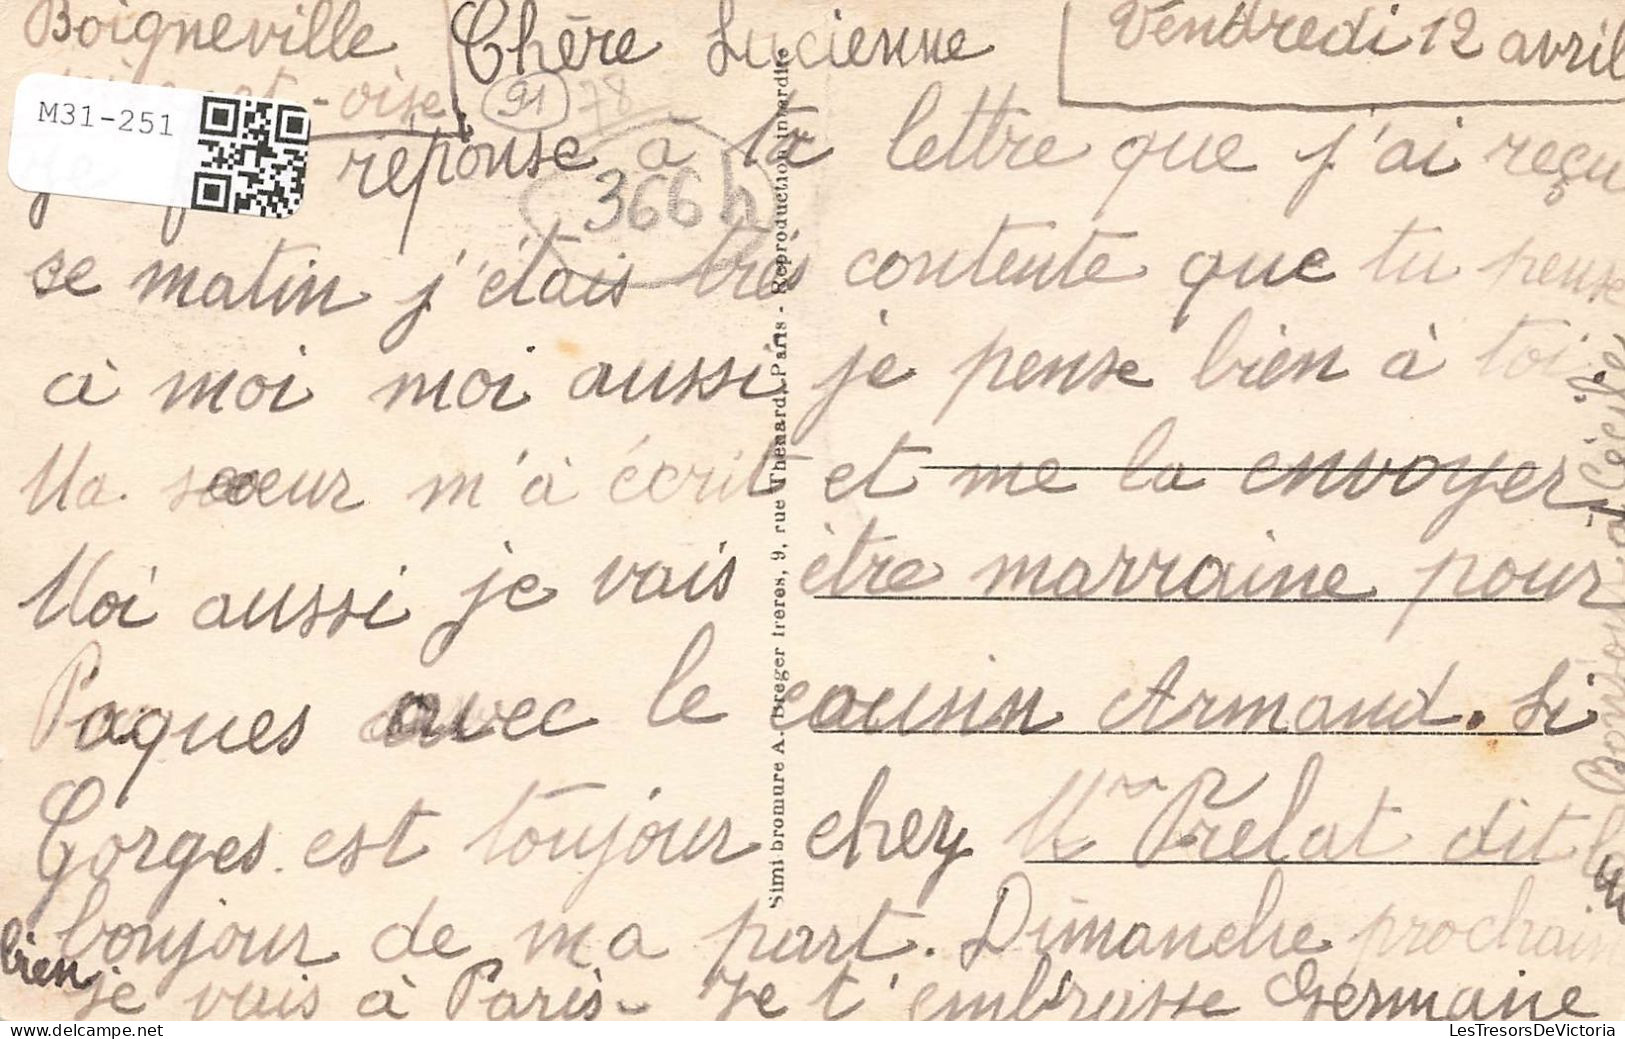 Boigneville Chère Lucienne Vendredi 12 avril
et-oise
M31-251
91 78
366h
Je réponse à ta lettre que j'ai reçu
se matin j'étais très contente que tu pense
à moi moi aussi je pense bien à toi.
Ma soeur m'à écrit et me la envoyer
Moi aussi je vais être marraine pour
Paques avec le cousin Armand. Si
Gorges est toujour chez Mme Prelat dit lui
bien bonjour de ma part. Dimanche prochain
je vais à Paris - Je t'embrasse Germaine
Bonjour à Cécile
Simi bromure A. Breger freres, 9, rue Thenard, Paris - Reproduction interdite
LesTresorsDeVictoria
https://www.delcampe.net